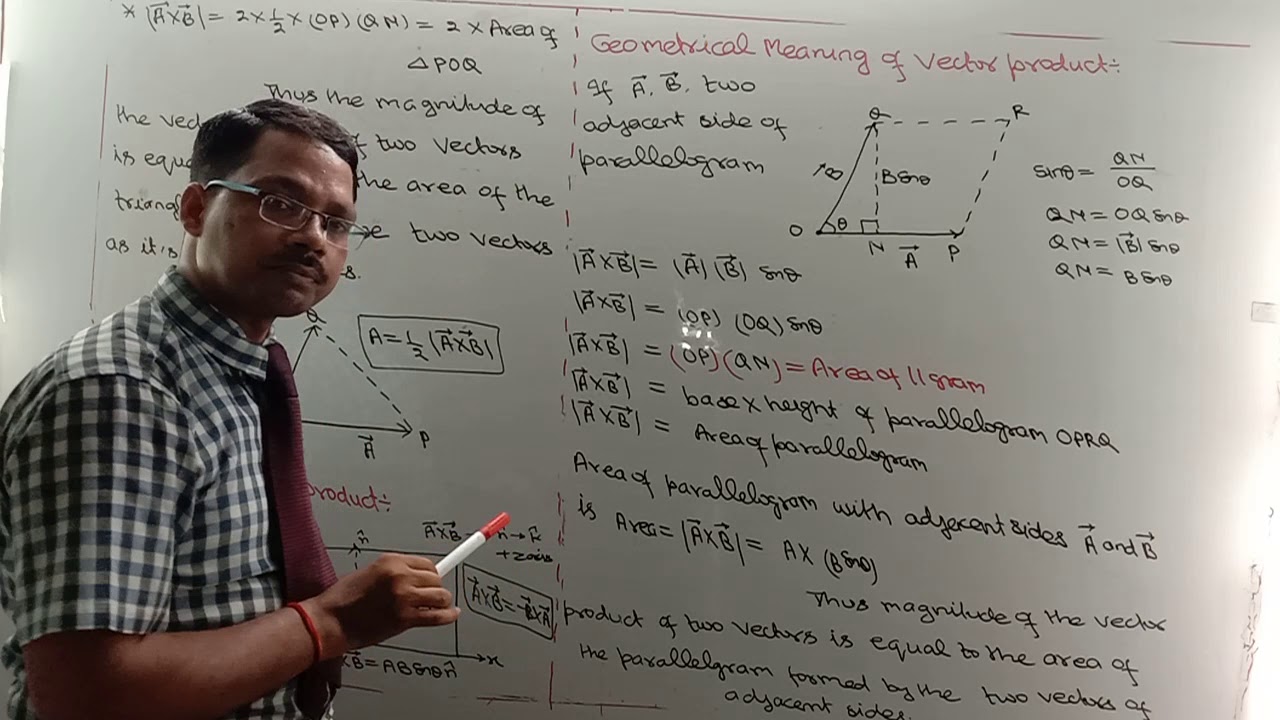 * |A⃗×B⃗| = 2×½×(OP)(QN) = 2×Area of
△POQ
Thus the magnitude of
the vec of two vectors
is equa the area of the
triang e two vectors
as it's s.
Q
A = ½ |A⃗×B⃗|
A⃗ P
product:-
n̂ A⃗×B⃗ n̂→k̂
+z axis
A⃗×B⃗ = -B⃗×A⃗
×B⃗ = AB sinθ n̂ x
Geometrical Meaning of Vector product:-
If A⃗, B⃗, two
adjacent side of
parallelogram
Q R
B⃗ B sinθ
O θ N A⃗ P
sinθ = QN/OQ
QN = OQ sinθ
QN = |B⃗| sinθ
QN = B sinθ
|A⃗×B⃗| = |A⃗| |B⃗| sinθ
|A⃗×B⃗| = (OP) (OQ) sinθ
|A⃗×B⃗| = (OP)(QN) = Area of ||gram
|A⃗×B⃗| = base×height of parallelogram OPRQ
|A⃗×B⃗| = Area of parallelogram
Area of parallelogram with adjecent sides A⃗ and B⃗
is Area = |A⃗×B⃗| = A×(B sinθ)
Thus magnitude of the vector
product of two vectors is equal to the area of
the parallelgram formed by the two vectors of
adjacent sides.